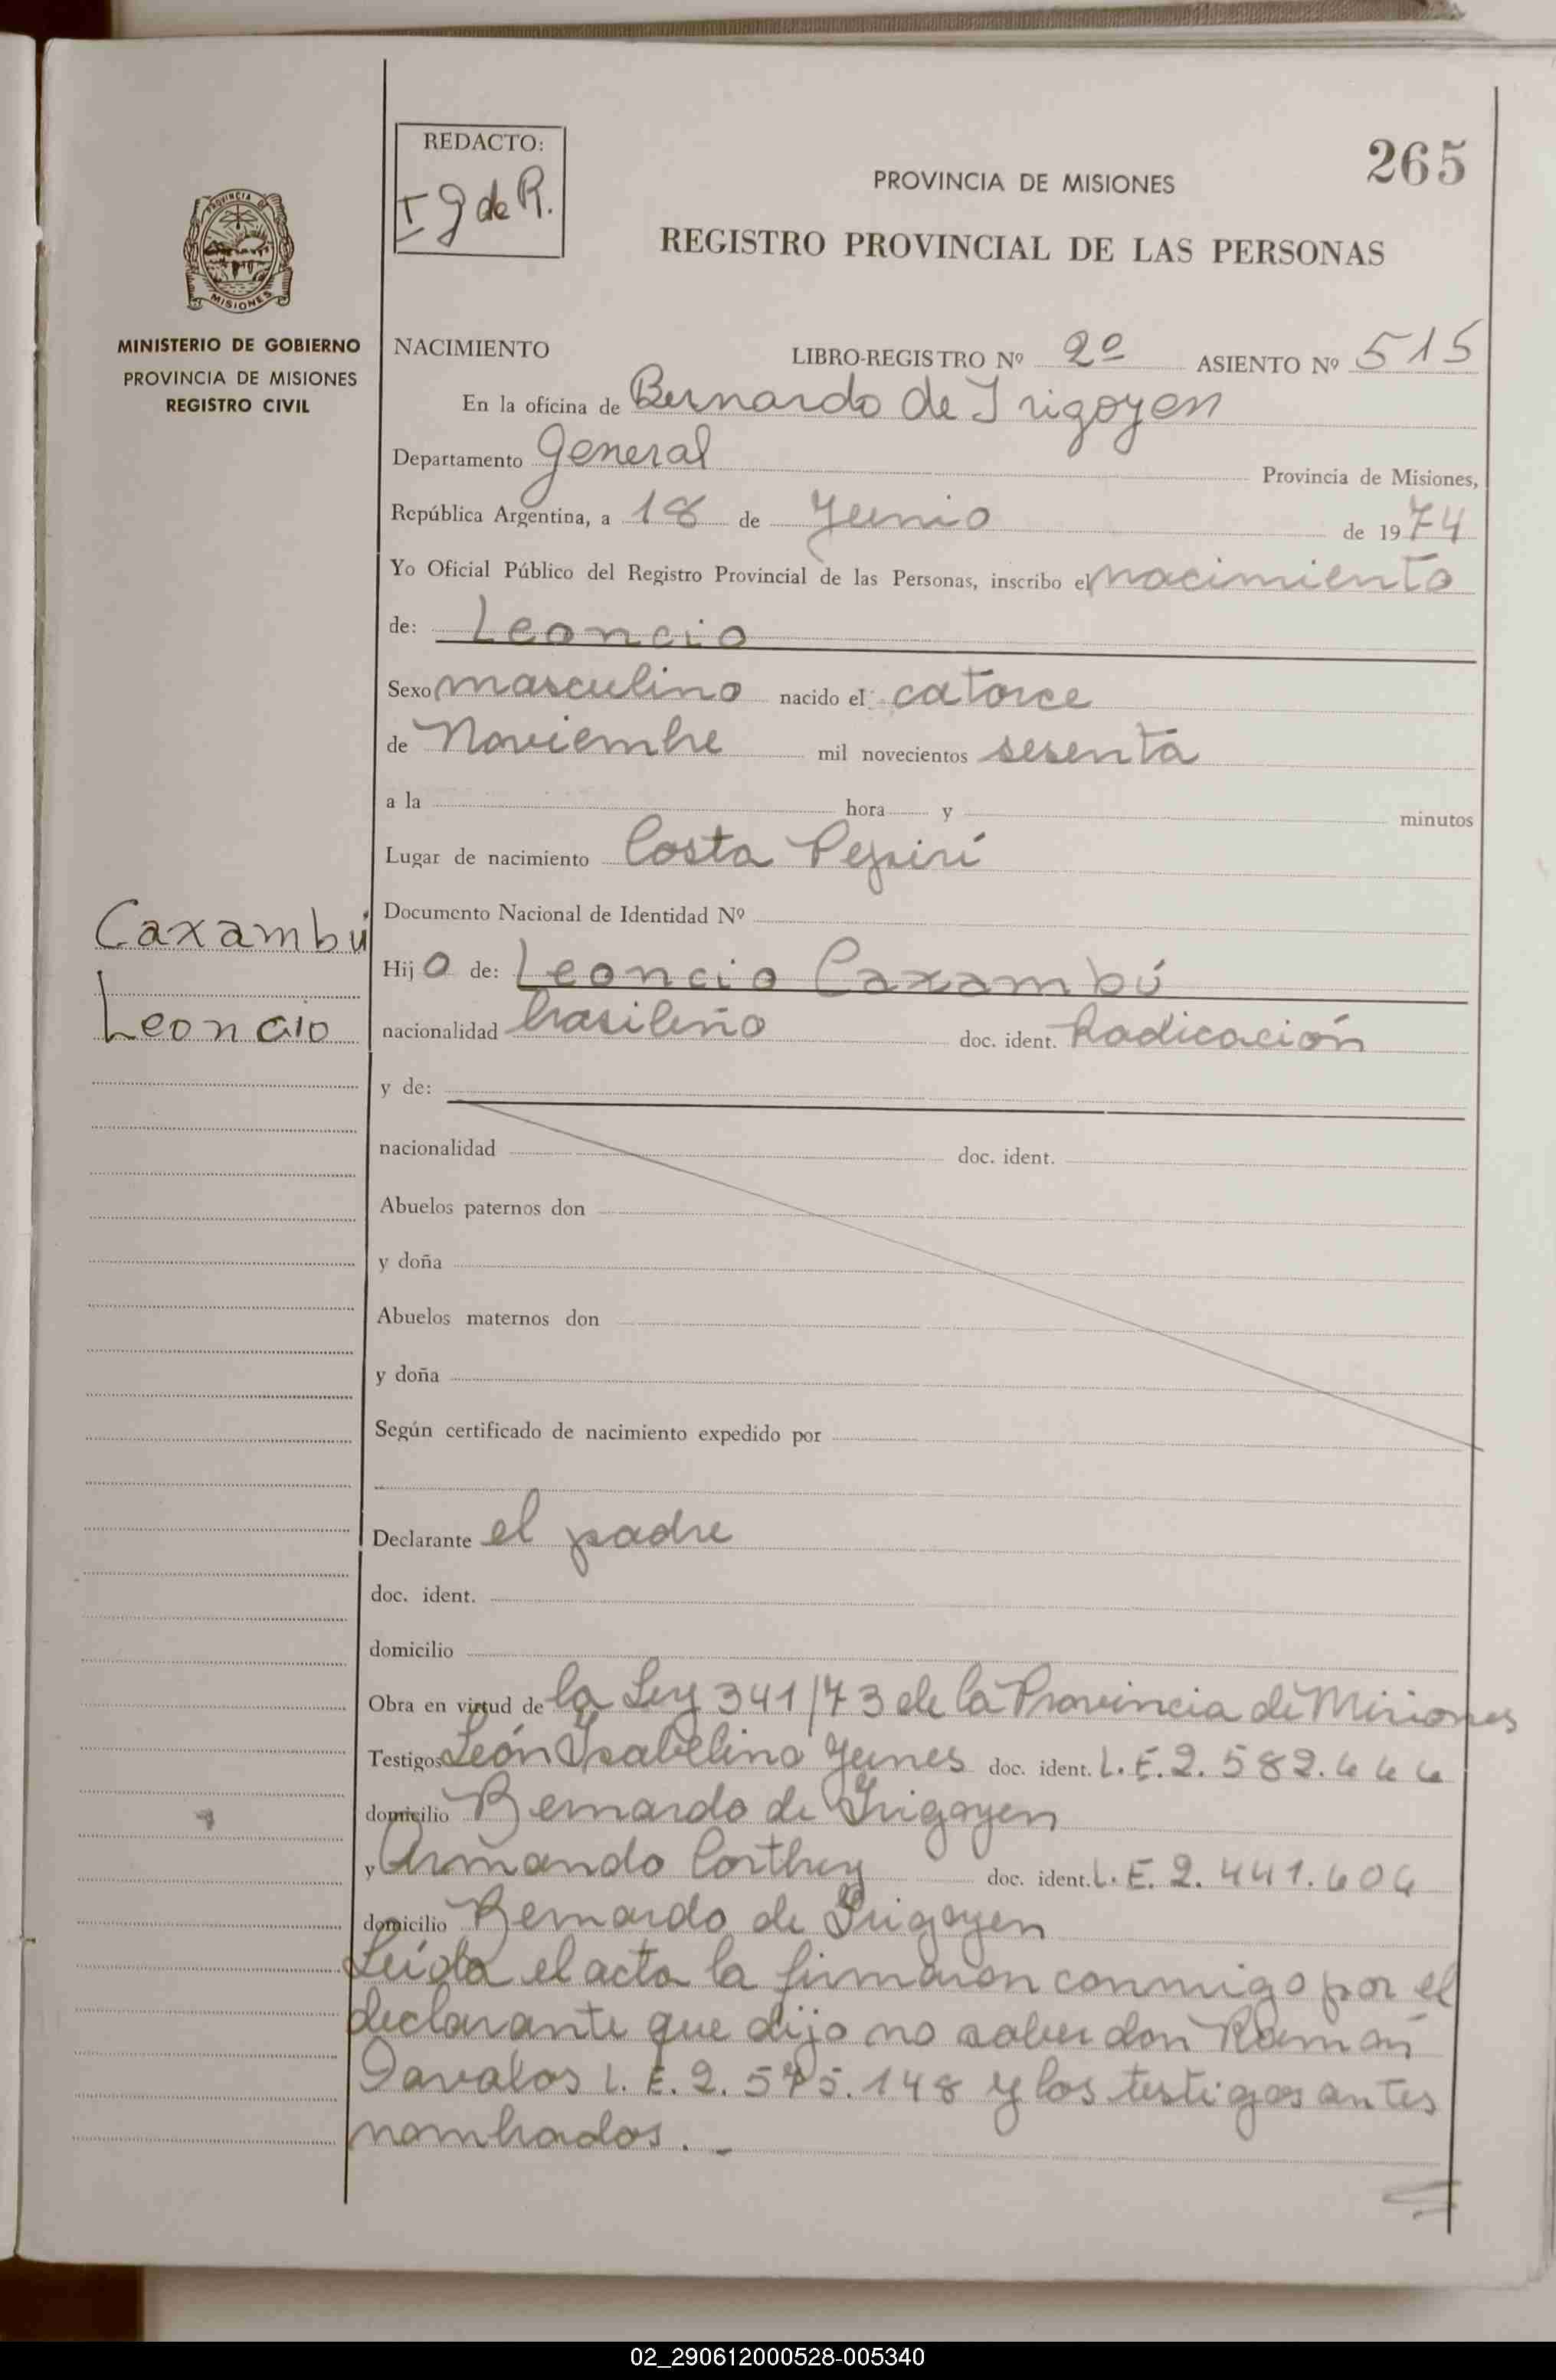 REDACTO:
I g de R.
265
PROVINCIA DE MISIONES
REGISTRO PROVINCIAL DE LAS PERSONAS
PROVINCIA DE
MISIONES
MINISTERIO DE GOBIERNO
PROVINCIA DE MISIONES
REGISTRO CIVIL
NACIMIENTO LIBRO-REGISTRO Nº 2º ASIENTO Nº 515
En la oficina de Bernardo de Irigoyen
Departamento General Provincia de Misiones,
República Argentina, a 18 de Junio de 1974
Yo Oficial Público del Registro Provincial de las Personas, inscribo el nacimiento
de: Leoncio
Sexo masculino nacido el catorce
de Noviembre mil novecientos sesenta
a la hora y minutos
Lugar de nacimiento Costa Pepirí
Documento Nacional de Identidad Nº
Caxambú
Leoncio
Hijo de: Leoncio Caxambú
nacionalidad brasileño doc. ident. Radicación
y de:
nacionalidad doc. ident.
Abuelos paternos don
y doña
Abuelos maternos don
y doña
Según certificado de nacimiento expedido por
Declarante el padre
doc. ident.
domicilio
Obra en virtud de la Ley 341/73 de la Provincia de Misiones
Testigos León Isabelino Yunes doc. ident. L.E.2.582.
domicilio Bernardo de Irigoyen
y Armando Corthey doc. ident. L.E. 2.441.
domicilio Bernardo de Irigoyen
Leída el acta la firmaron conmigo por el
declarante que dijo no saber don Ramón
Davalos L.E.2.575.148 y los testigos antes
nombrados.-
02_290612000528-005340